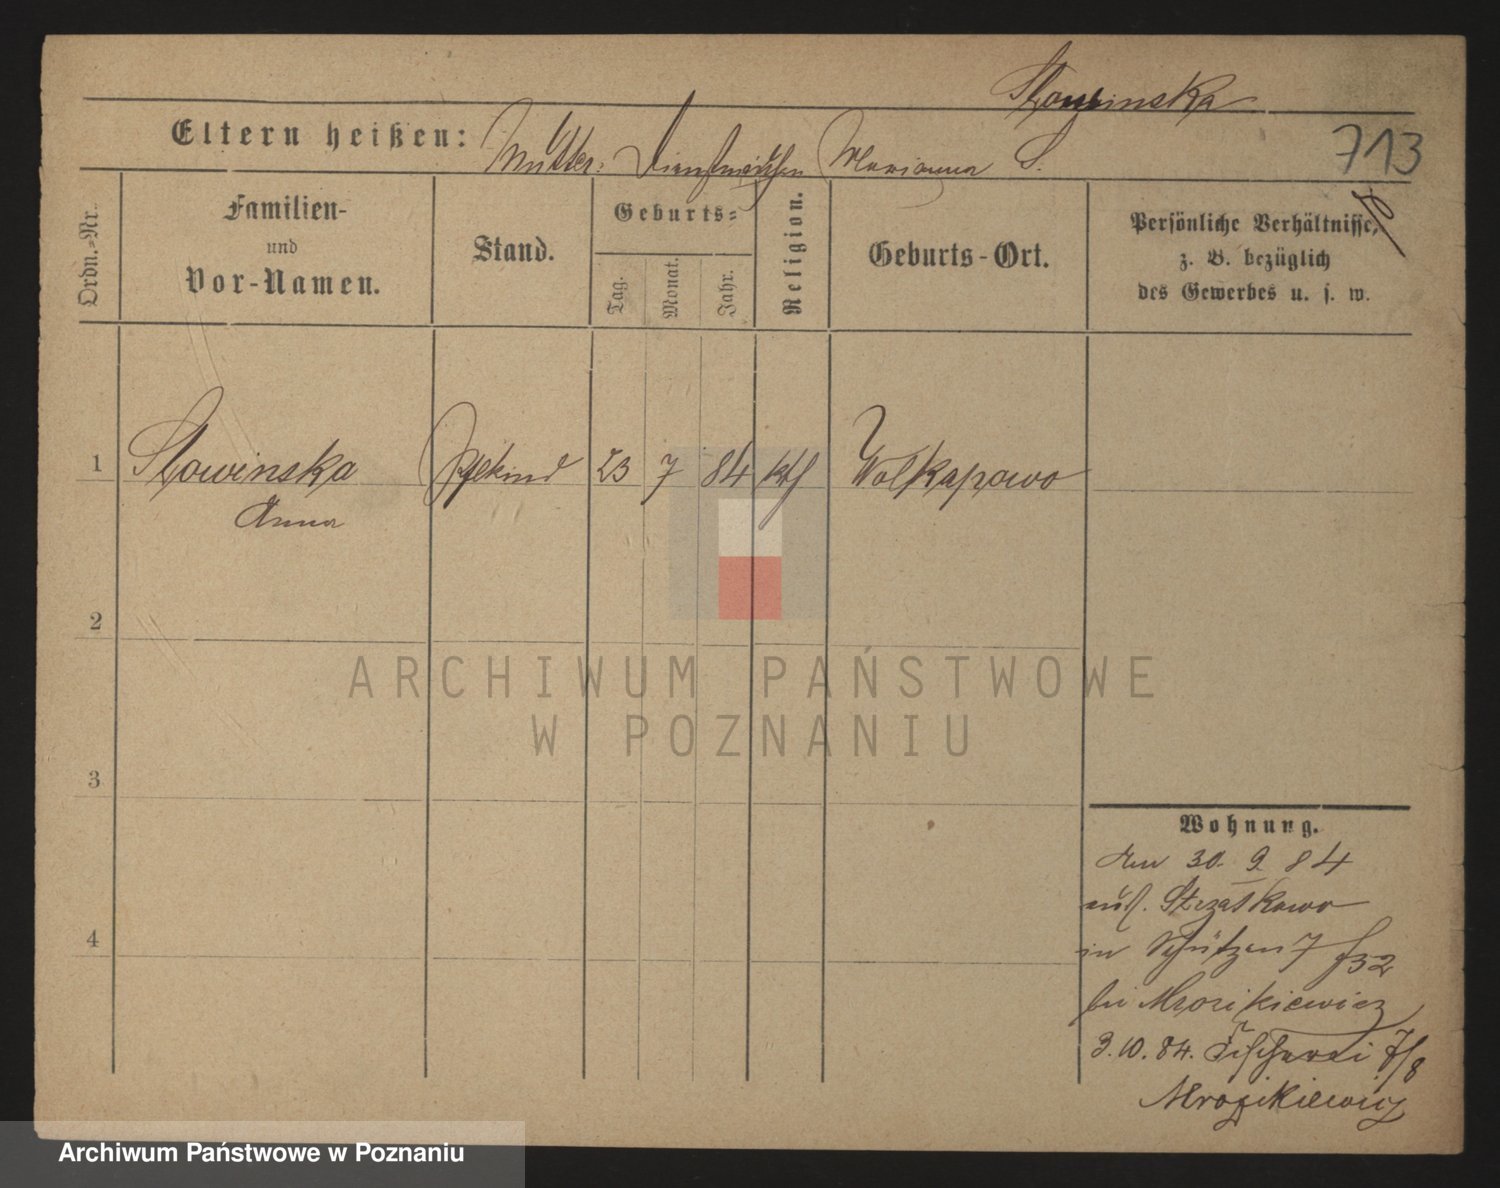 Słowinska
Eltern heißen: Mutter: Dienstmädchen Marianna S.
713
Ordn.-Nr.
Familien-
und
Vor-Namen.
Stand.
Geburts-
Tag.
Monat.
Jahr.
Religion.
Geburts-Ort.
Persönliche Verhältnisse,
z. B. bezüglich
des Gewerbes u. s. w.
1 Słowinska Pflekind 23 7 84 kth Wolkapowo
Anna
2
3
4
Wohnung.
30. 9. 84
aus. Strzałkowo
in Schützen 7
bei Mrozikiewicz
3. 10. 84. Fischerei 7/8
Mrozikiewicz
ARCHIWUM PAŃSTWOWE
W POZNANIU
Archiwum Państwowe w Poznaniu